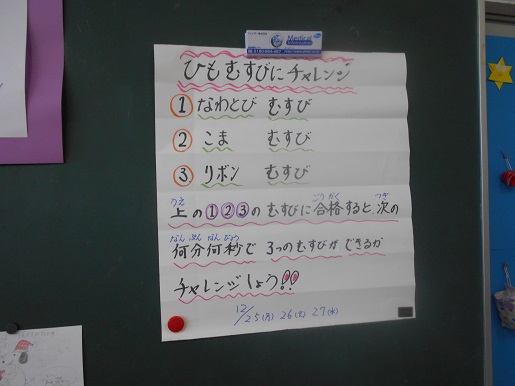 Medical
ひもむすびにチャレンジ
① なわとび むすび
② こま むすび
③ リボン むすび
うえ ごうかく つぎ
上の①②③のむすびに合格すると、次の
なん ぷん なん びょう
何分何秒で 3つのむすびができるか
チャレンジしょう!!
12/25(月) 26(火) 27(水)